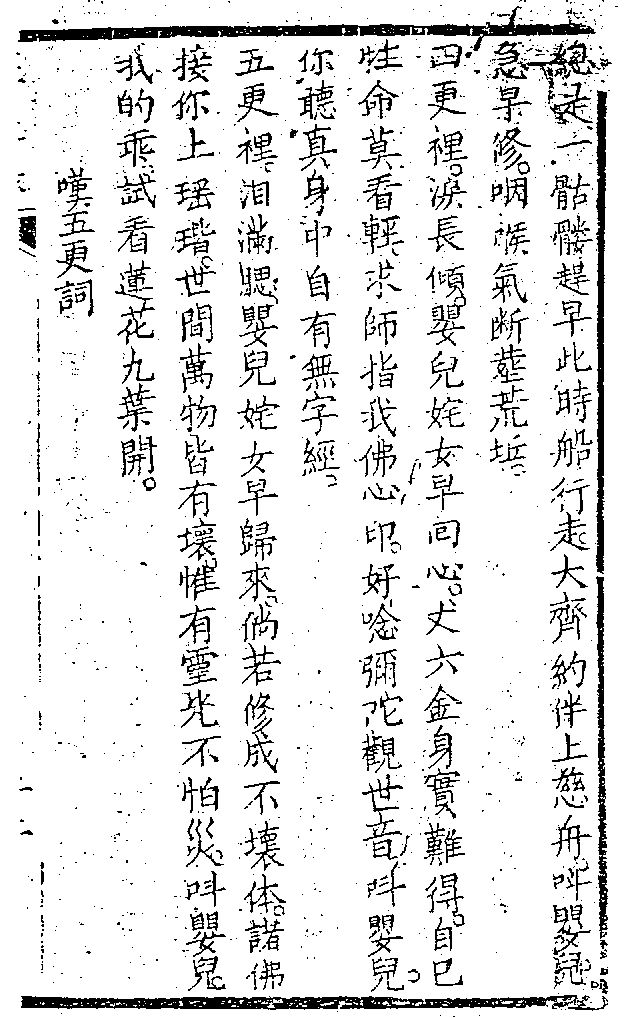 總是一骷髏趕早此時船行走大齊約伴上慈舟叫嬰兒
急早修咽喉氣断塟荒坵
四更裡淚長傾嬰兒姹女早回心丈六金身實難得自己
性命莫看輕求師指我佛心印好唸彌陀觀世音叫嬰兒
你聽真身中自有無字經
五更裡泪滿腮嬰兒姹女早歸來倘若修成不壞体諸佛
接你上瑶瑎世間萬物皆有壞惟有靈光不怕災叫嬰兒
我的乖試看蓮花九葉開。
嘆五更詞